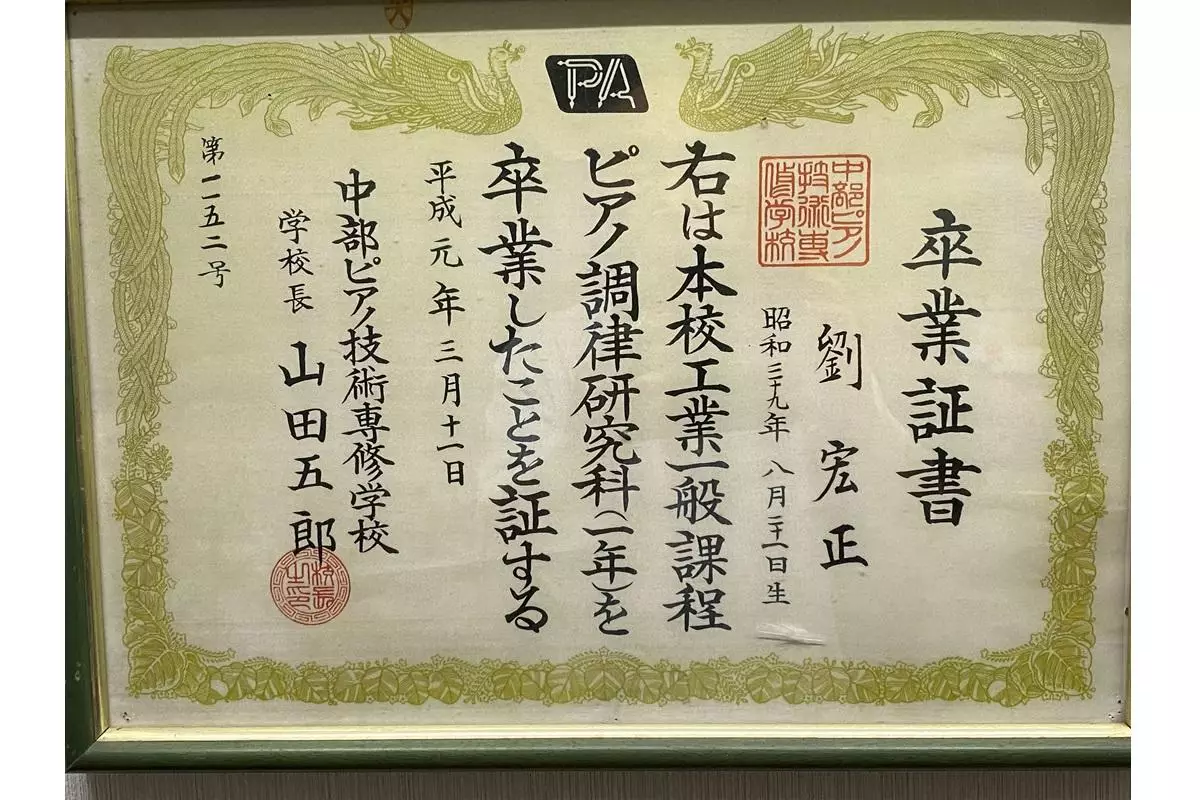 PA
卒業証書
劉宏正
昭和三十九年八月二十一日生
中部ピアノ
技術専
修学校
右は本校工業一般課程
ピアノ調律研究科(一年)を
卒業したことを証する
平成元年三月十一日
中部ピアノ技術専修学校
学校長 山田五郎
校長
之印
第一一五二号